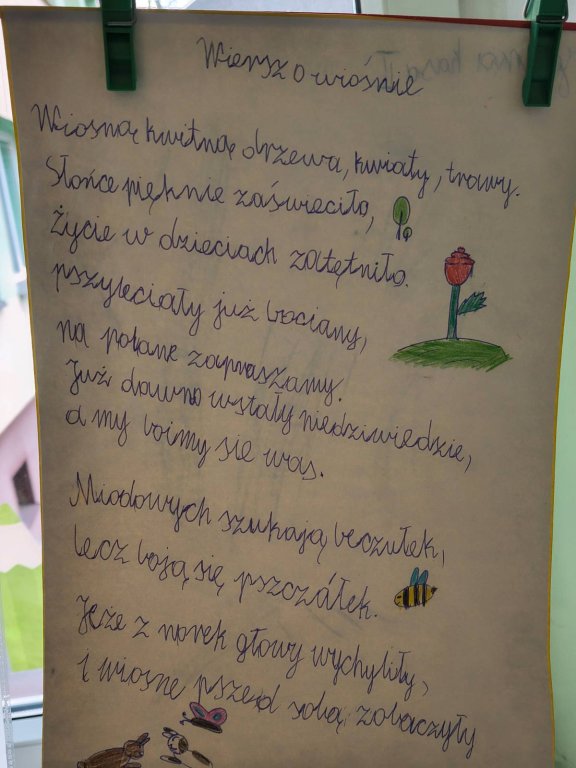 Wiersz o wiośnie
Wiosną kwitną drzewa, kwiaty, trawy.
Słońce pięknie zaświeciło,
Życie w dzieciach zatętniło.
pszyleciały już bociany,
na polane zapraszamy.
Już dawno wstały niedziwiedzie,
a my boimy sie was.
Miodowych szukają beczułek,
lecz boją się pszczółek.
Jeże z norek głowy wychyliły,
i wiosne pszed sobą zobaczyły